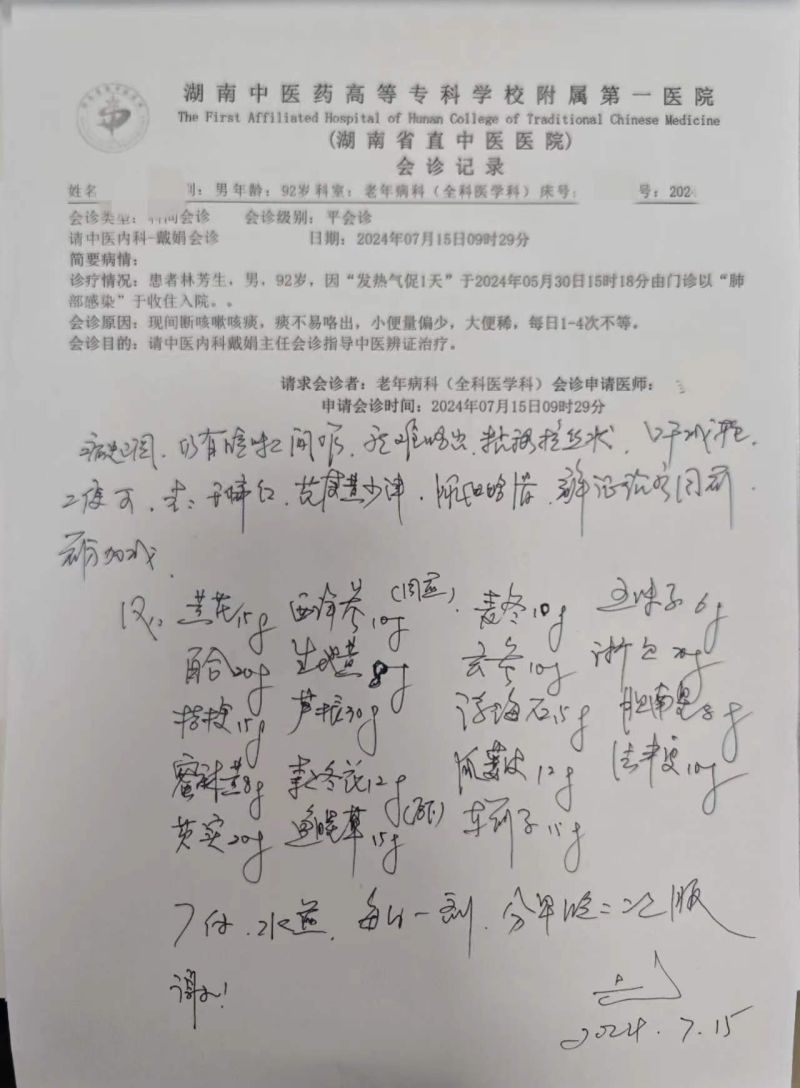 湖南中医药高等专科学校附属第一医院
The First Affiliated Hospital of Hunan College of Traditional Chinese Medicine
(湖南省直中医医院)
会诊记录
姓名 别：男 年龄：92岁 科室：老年病科（全科医学科）床号： 号：202
会诊类型：科间会诊 会诊级别：平会诊
请中医内科-戴娟会诊 日期：2024年07月15日09时29分
简要病情：
诊疗情况：患者林芳生，男，92岁，因“发热气促1天”于2024年05月30日15时18分由门诊以“肺
部感染”于收住入院。。
会诊原因：现间断咳嗽咳痰，痰不易咯出，小便量偏少，大便稀，每日1-4次不等。
会诊目的：请中医内科戴娟主任会诊指导中医辨证治疗。
请求会诊者：老年病科（全科医学科）会诊申请医师：
申请会诊时间：2024年07月15日09时29分
仍有咳嗽间作，痰难咯出，粘稠拉丝状，口干
二便可，舌干绛红，苔黄少津，辨证论治同前
前方加减
黄芪15g 西洋参10g（同煎） 麦冬10g 五味子6g
百合20g 生地黄8g 玄参10g 浙贝20g
桔梗15g 芦根30g 浮海石15g 胆南星8g
蜜麻黄8g 款冬花12g 瓜蒌皮12g 法半夏10g
芡实20g 鱼腥草15g(后下) 车前子15g
7付，水煎，每日一剂，分早晚二次服
谢谢！
2024.7.15